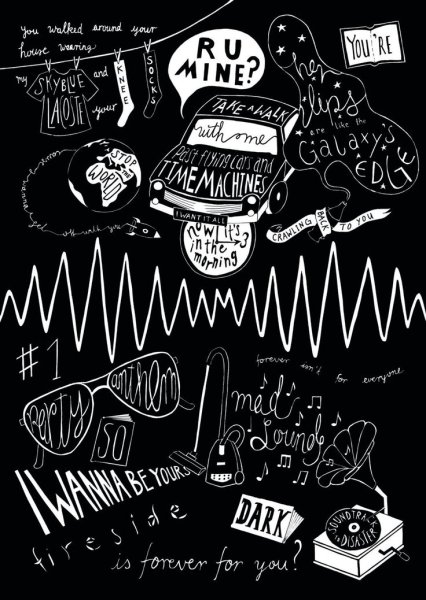 you walked around your
house wearing
my SKY BLUE
LACOSTE
and
your
KNEE
SOCKS
R U
MINE?
YOU'RE
her
lips
are like the
Galaxy's
EDGE
TAKE A WALK
with me
past flying cars and
TIME MACHINES
I WANT IT ALL
STOP THE
WORLD
cause I wanna get
off with you
NOW it's 3
in the
morning
CRAWLING BACK TO YOU
#1
party
anthem
SO
forever isn't for everyone
mad
Sounds
I WANNA BE YOURS
DARK
SOUNDTRACK
to DISASTER
fireside
is forever for you?